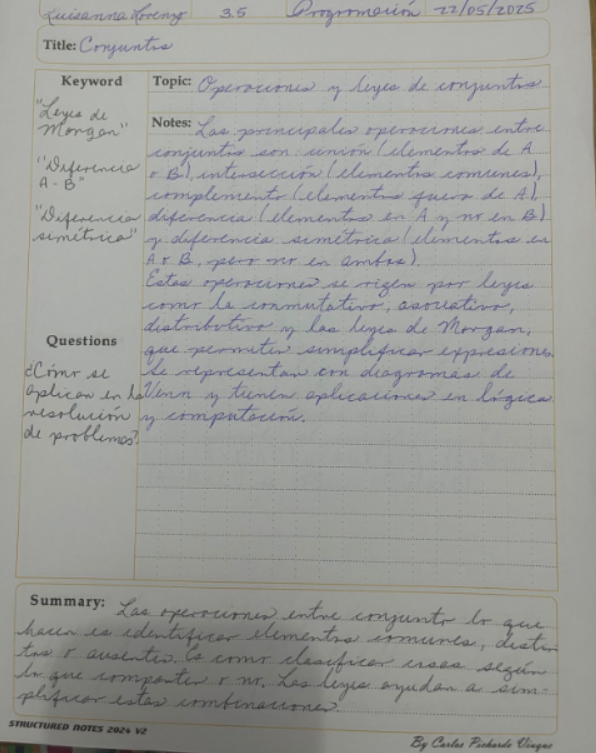 Luisanna Lorenzo 3.5 Programación 22/05/2025
Title: Conjuntos
Keyword
"Leyes de
Morgan"
"Diferencia
A - B"
"Diferencia
simétrica"
Questions
¿Cómo se
aplican en la
resolución
de problemas?
Topic: Operaciones y leyes de conjuntos
Notes: Las principales operaciones entre
conjuntos son: unión (elementos de A
o B), intersección (elementos comunes),
complemento (elementos fuera de A),
diferencia (elementos en A y no en B)
y diferencia simétrica (elementos en
A o B, pero no en ambos).
Estas operaciones se rigen por leyes
como la conmutativa, asociativa,
distributiva y las leyes de Morgan,
que permiten simplificar expresiones.
Se representan con diagramas de
Venn y tienen aplicaciones en lógica
y computación.
Summary: Las operaciones entre conjunto lo que
hacen es identificar elementos comunes, distin
tos o ausentes. Es como clasificar cosas según
lo que comparten o no. Las leyes ayudan a sim-
plificar estas combinaciones.
STRUCTURED NOTES 2024 V2
By Carlos Pichardo Vinque